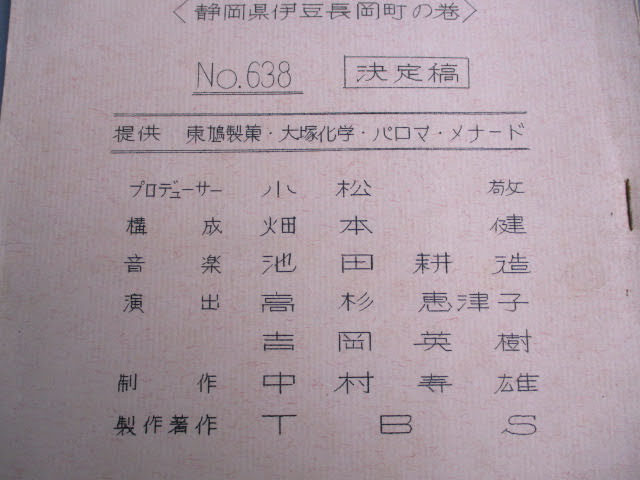 〈静岡県伊豆長岡町の巻〉
No.638 決定稿
提供 東鳩製菓・大塚化学・パロマ・メナード
プロデューサー 小松 敬
構成 畑本 健
音楽 池田耕造
演出 高杉恵津子
吉岡英樹
制作 中村寿雄
製作著作 TBS